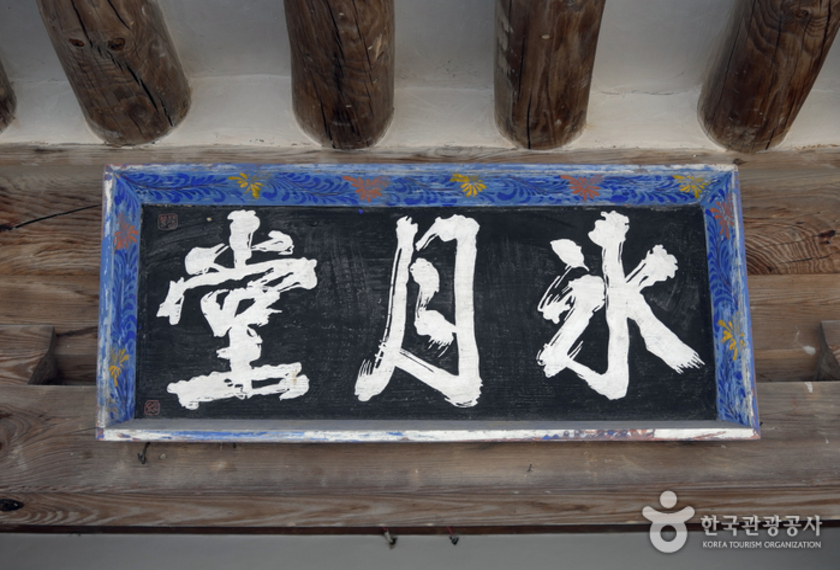 氷月堂
한국관광공사
KOREA TOURISM ORGANIZATION